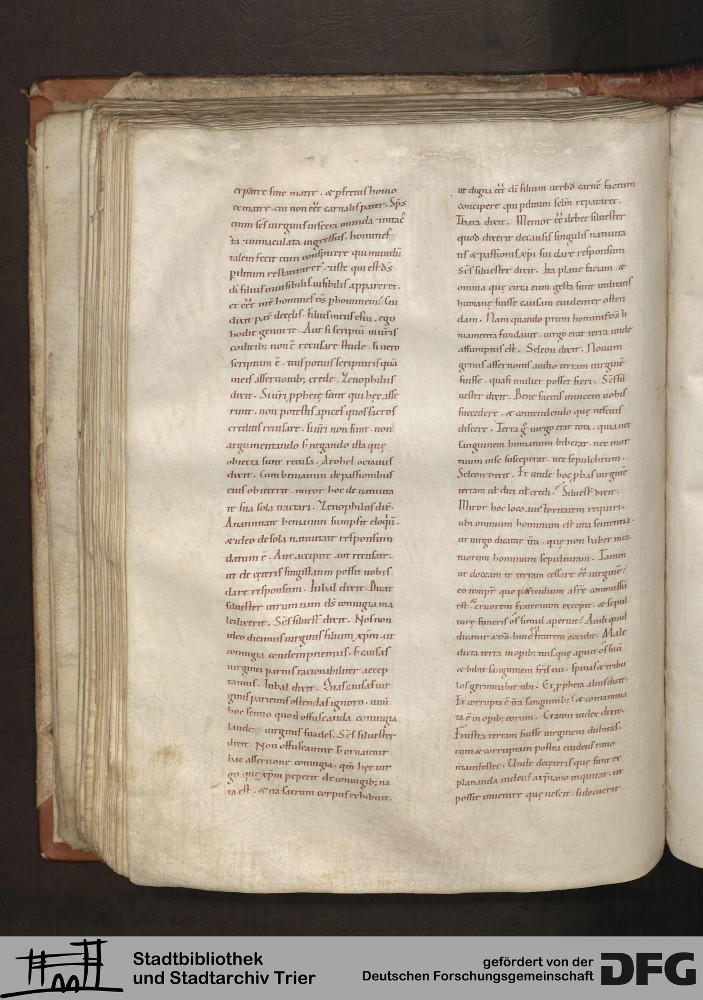 ex patre sine matre . & p̱fectus homo
ex matre . cui non eēt carnalis pater . Sp̄s
enim sc̄s virginis viscera munda . intac
ta . inmaculata ingressus . hominē
talem fecit cum conspicere qui mundū
primum restauraret . iste qui est dī
dī filius invisibilis visibilis appareret .
et eēt int̄ homines ōs
dixit pat̄ de celis . filius meus es tu . ego
hodie genui te . Aut si scriptū in ur̄is
codicib; non ē recusare stude . si vero
scriptum ē . tuis potius scripturis quā
meis assertionib; crede . Zenophilus
dixit . Si uri pphetę sunt qui hęc asse
runt . non potestis apices quos sacros
creditis recusare . si uri non sunt . non
argumentando s; negando ista quę
obiecta sunt recusa . Arohel octavus
dixit . Cum beniamin de passionibus
eius obiecerit . miror hoc de nativita
te sua sola tractari . Zenophilus dix̄ .
A nativitate beniamin sumpsit eloqū .
& ideo de sola nativitate responsum
datum ē . Aut accipite . aut recusate .
ut de cęteris singillatim possit vobis
dare responsum . Iubal dixit . Dicat
silvester utrum nam ds̄ coniugia ma
ledixerit . Sc̄s silvest̄ dixit . Nos non
ideo dicimus virginis filium xp̄m . ut
coniugia condempnemus . s; causas
virginei partus racionabiliter accep
tamus . Iubal dixit . Quas causas vir
ginis parientis ostendas ignoro . unū
hoc sentio quod offuscanda coniugia
laude virginis suades . Sc̄s silvester
dixit . Non offuscantur s; ornantur
hac assertione coniugia . qm̄ hęc vir
go quę xp̄m peperit de coniugib; na
ta est . & ita sacrum corpus exhibuit .
ut digna eēt dī filium verbū carnē factum
concipere qui primum sclm̄ repararet .
Thara dixit . Memor eē debet silvester
quod dixerit de causis singulis nativita
tis & passionis xp̄i sui dare responsum
Sc̄s silvester dixit . Ita plane faciam . &
omnia quę circa eum gesta sunt utilitatis
humanę fuisse causam evidenter osten
dam . Nam quando primū hominē ds̄ li
mamenta fundavit . virgo erat terra unde
assumptus est . Seleon dixit . Novum
genus assertionis audio terram virginē
fuisse . quasi mulier posset fieri . Sc̄s sil
vester dixit . Bene facitis invicem vobis
succedere . & contendendo quę nescitis
discere . Terra g̊ virgo erat tota . quia nec
sanguinem humanum biberat . nec mor
tuum in se susceperat . nec sepulchrum .
Seleon dixit . Et unde hoc p̱bas virginē
terram vel dici vel credi . Silvest̄ dixit .
Miror hoc loco auctoritatem requiri .
ubi omnium hominum est una sententia .
ut virgo dicatur tr̄a . quę non habet mor
tuorum hominum sepulturam . Tamen
ut doceam te terram cessare eē virginē
eo tempr̄ quo parricidium a fr̄e commissū
est . & cruorem fraternum excepit . & sepul
turę funeris os simul aperuit . Audi quid
dicatur a dn̄o huic qui fratrem occidit . Male
dicta terra in opib; tuis quę aperuit os suū
& bibit sanguinem fr̄is tui . spinas & tribu
los germinabit tibi . Et ppheta alius dicit .
Et corrupta ē tr̄a sanguinib; & contamina
ta ē in opib; eorum . Craton iudex dixit .
Frustra terram fuisse virginem dubitas .
cum & corruptam postea evidens ratio
manifestet . Unde de cęteris quę sunt ex
plananda iudeus a xp̄iano inquirat . ut
possit invenire quę nescit . si docuerit
Stadtbibliothek
und Stadtarchiv Trier
gefördert von der
Deutschen Forschungsgemeinschaft
DFG